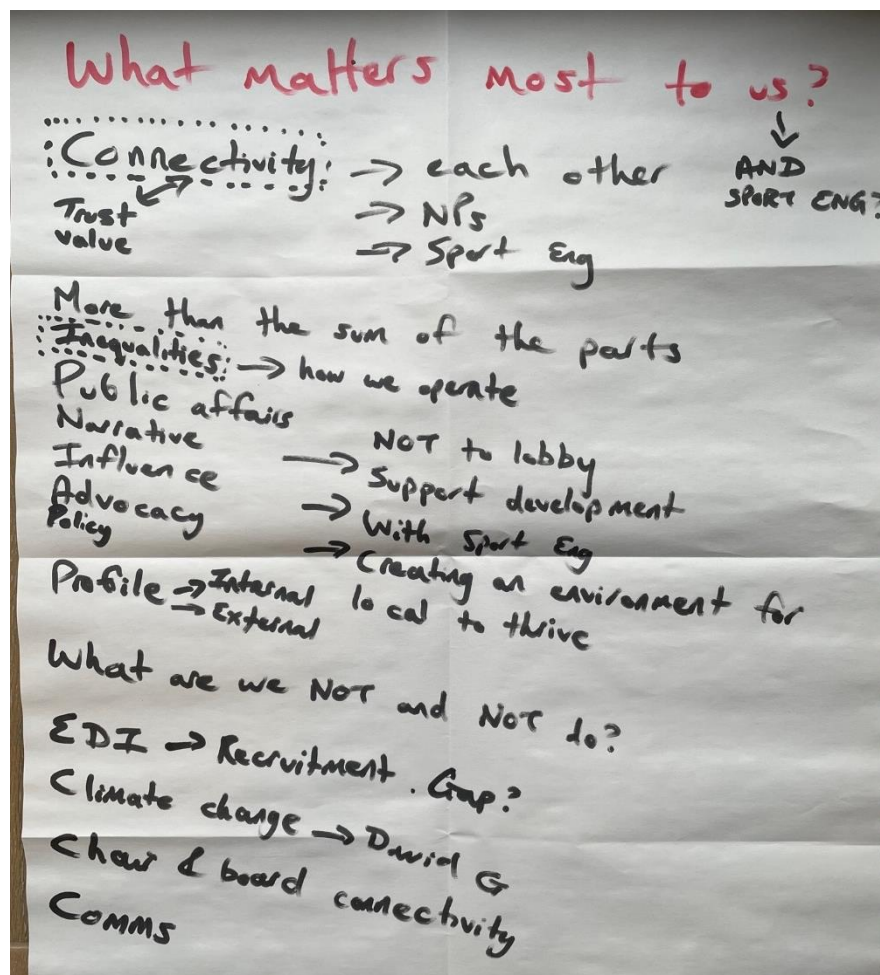 What matters most to us?
AND
SPORT ENG?
Connectivity → each other
Trust
value
→ NPs
→ Sport Eng
More than the sum of the parts
Inequalities → how we operate
Public affairs
Narrative
Influence
Advocacy
Policy
→ NOT to lobby
Support development
→ With Sport Eng
→ Creating an environment for
local to thrive
Profile → Internal
→ External
What are we NOT and NOT do?
EDI → Recruitment. Gap?
Climate change → David G
Chair & board connectivity
Comms